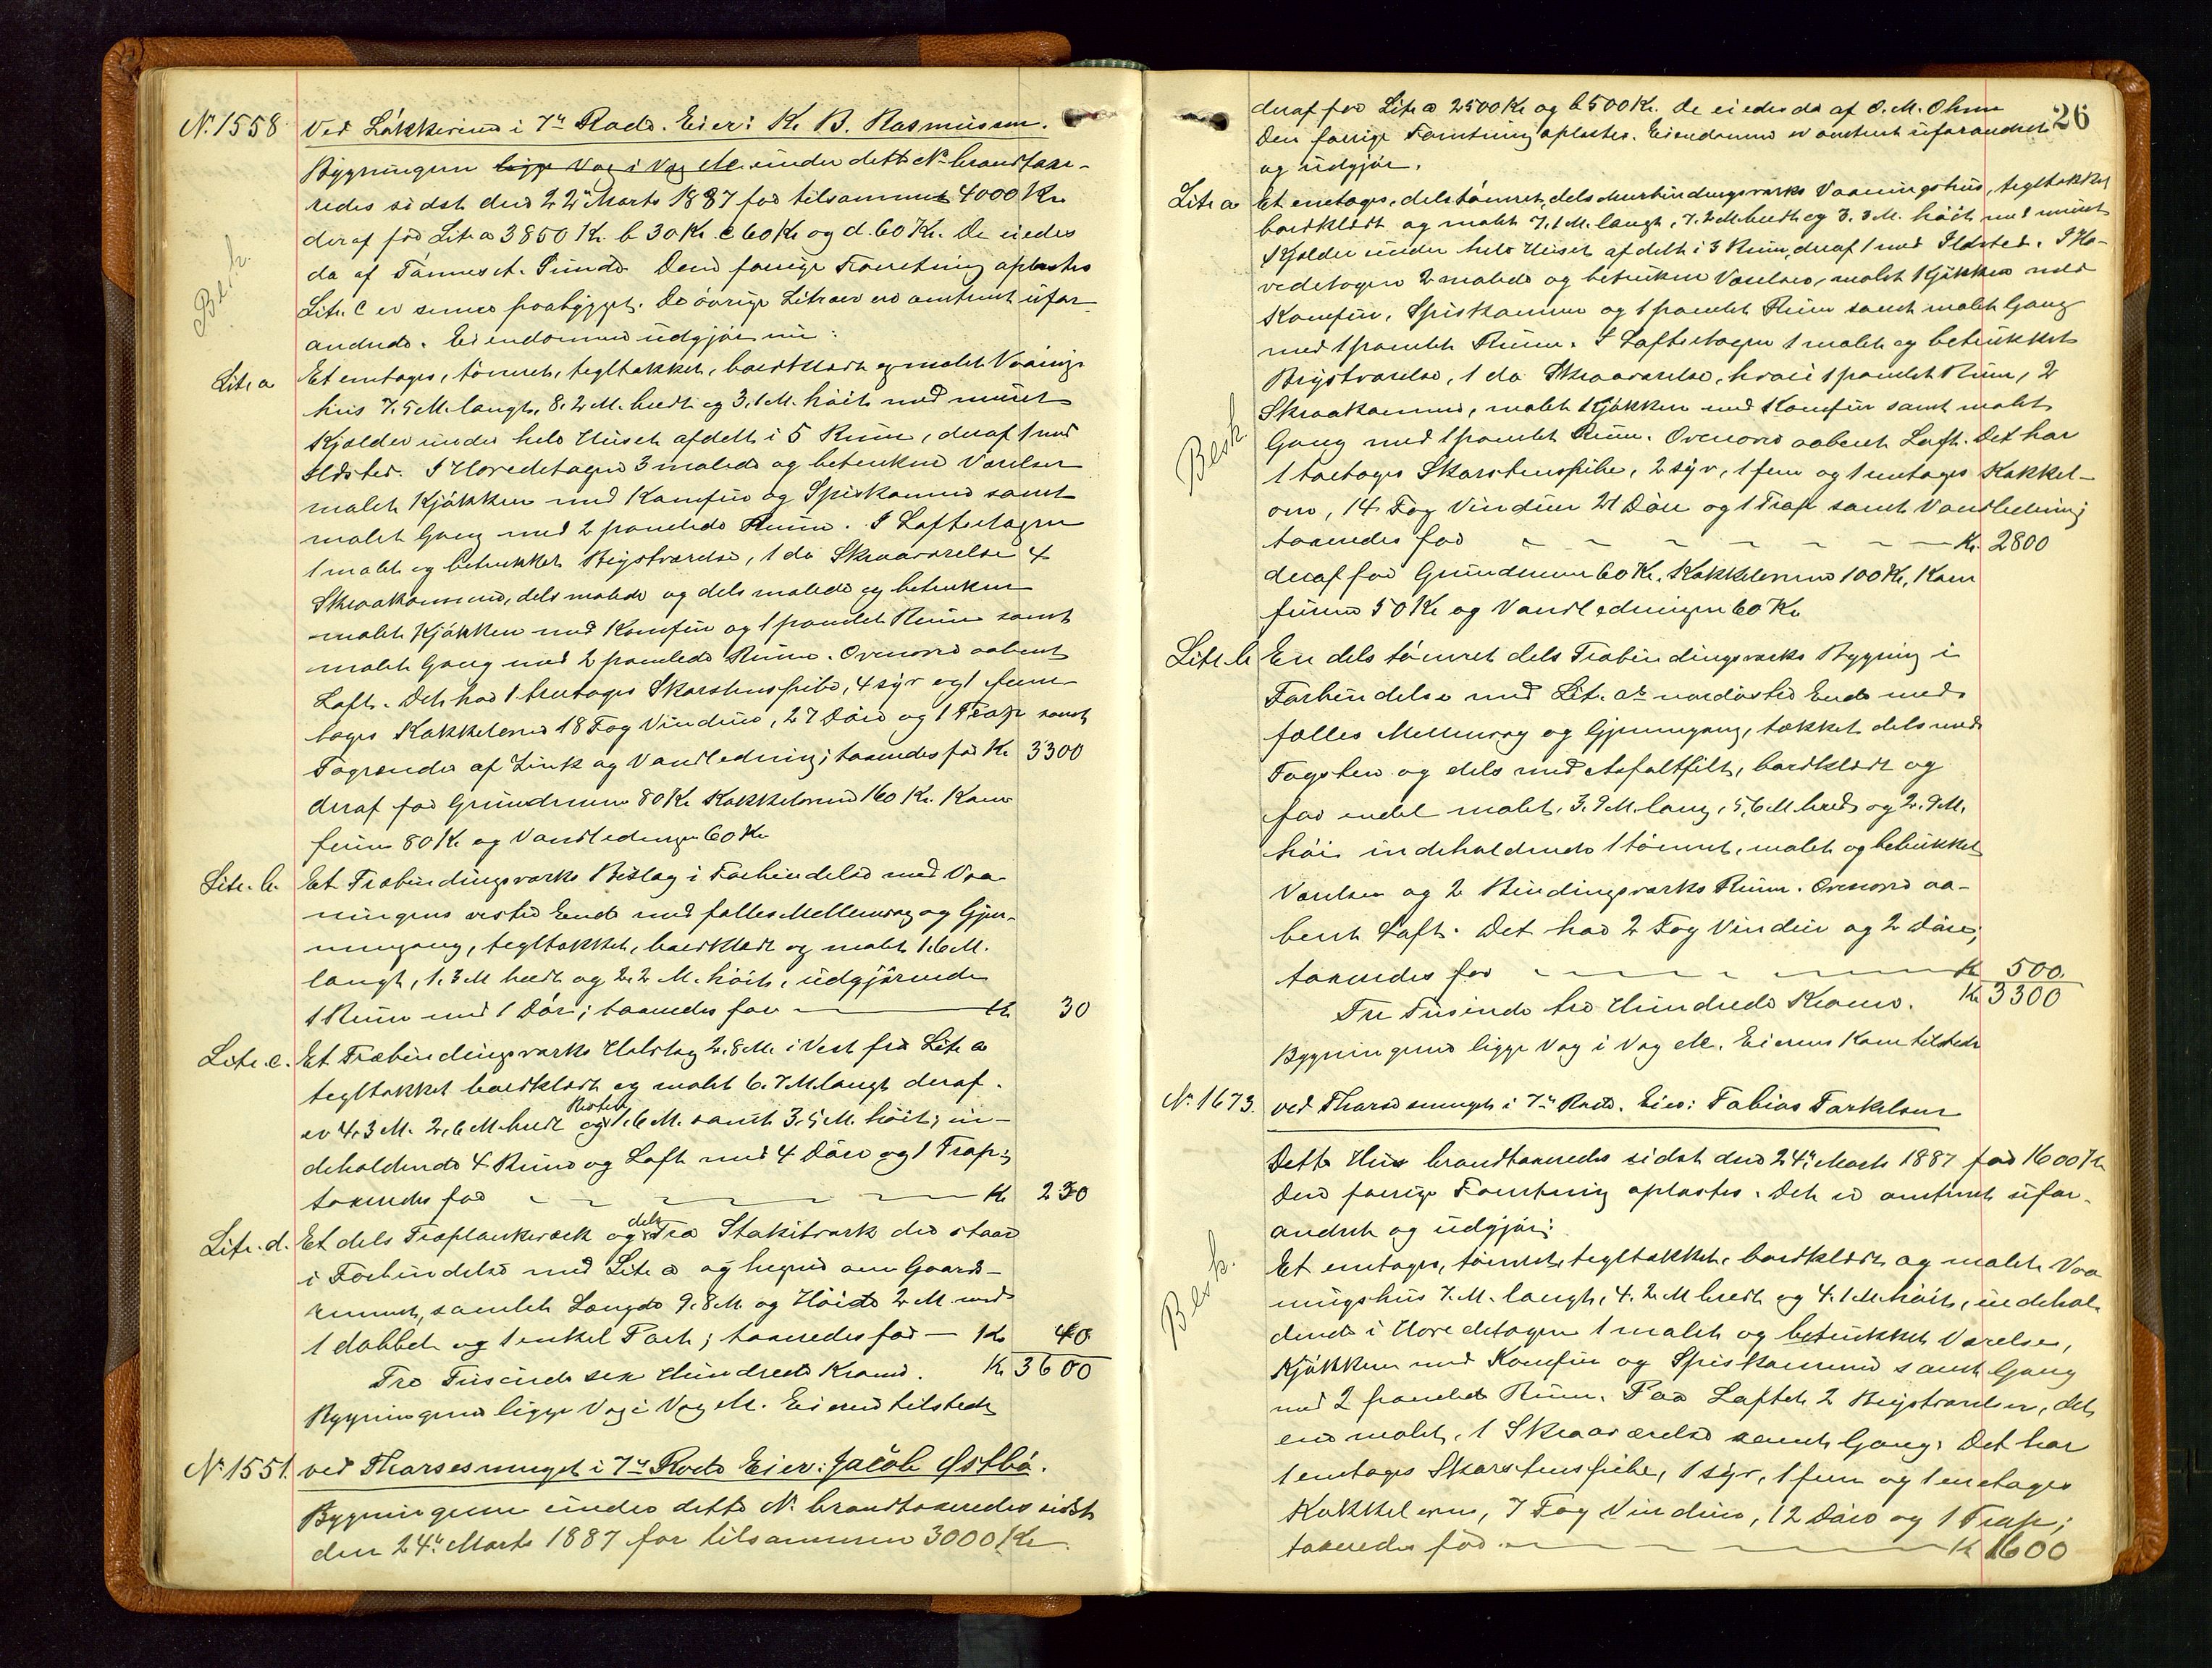 N. 1558 Ved Løkkerne i 7de Rode. Eier: K. B. Rasmussen.
Bygningerne ligge Væg i Væg M. under dette No brandtaxe-
redes sidst den 22de Marts 1887 for tilsammen 4000 Kr
deraf for Litr a 3850 Kr. b 30 Kr. c 60 Kr og d. 60 Kr. De eiedes
da af Tønnes A. Sunde. Den forrige Forretning oplæstes
Litr. C er senere paabygget. De øvrige Litraer ere omtrent ufor-
andrede. Eiendommen udgjør nu:
Besk.
Litr. a Et enetages, tømret, tegltækket, bordklædt og malet Vaanings
hus 7.5 M. langt, 8.2 M. bredt og 3.1 M. høit med muret
Kjælder under hele Huset afdelt i 5 Rum, deraf 1 med
Ildsted. I Hovedetagen 3 malede og betrukne Værelser
malet Kjøkken med Komfur og Spiskammer samt
malet Gang med 2 panelede Rum. I Loftsetagen
1 malet og betrukket Kvistværelse, 1 do Skraaværelse 4
Skraakammere, dels malede og dels malede og betrukne
malet Kjøkken med Komfur og 1 panelet Rum samt
malet Gang med 2 panelede Rum. Ovenover aabent
Loft. Det har 1 treetages Skorstenspibe, 4 syv og 1 fem-
tages Kakkelovne 18 Fag Vinduer, 27 Døre og 1 Trap samt
Tagrender af Zink og Vandledning; taxeredes for Kr 3300
deraf for Grundmuren 80 Kr Kakkelovnene 160 Kr. Kom-
furene 80 Kr og Vandledningen 60 Kr
Litr. b. Et Træbindingsværks Bislag i Forbindelse med Vaa-
ningens vestre Ende med fælles Mellemvæg og Gjen-
nemgang, tegltækket, bordklædt og malet 1.6 M.
langt, 1.3 M bredt og 2.2 M. høit, udgjørende
1 Rum med 1 Dør; taxeredes for Kr 30
Litr. c. Et Træbindingsværks Halvtag 2.8 M. i Vest fra Litr a
tegltækket bordklædt og malet 6.7 M. langt deraf
er 4.3 M. 2.6 M bredt og Resten 1.6 M. samt 3.5 M. høit; in-
deholdende 4 Rum og Loft med 4 Døre og 1 Trap;
taxeredes for Kr 230
Litr. d. Et dels Træplankeværk og dels Træ Stakitværk der staar
i Forbindelse med Litr a og hegner om Gaards-
rummet, samlet Længde 9.8 M. og Høide 2 M. med
1 dobbelt og 1 enkel Port; taxeredes for — Kr 40
Tre Tusinde sex Hundrede Kroner. Kr 3600
Bygningerne ligge Væg i Væg M. Eieren tilstede
N. 1551. ved Tharsesmuget i 7de Rode Eier: Jacob Østbø.
Bygningerne under dette N. brandtaxeredes sidst
den 24de Marts 1887 for tilsammen 3000 Kr
26
deraf for Litr a 2500 Kr og b 500 Kr. De eiedes da af O. M. Olsen
Den forrige Forretning oplæstes. Eiendommen er omtrent uforandret
og udgjør.
Litr. a Et enetages, dels tømret, dels Murbindingsværks Vaaningshus, tegltækket
bordklædt og malet 7.1 M. langt, 7.2 M. bredt og 3.3 M. høit med muret
Kjælder under hele Huset afdelt i 3 Rum, deraf 1 med Ildsted. I Ho-
vedetagen 2 malede og betrukne Værelser, malet Kjøkken med
Komfur, Spiskammer og 1 panelet Rum samt malet Gang
med 1 panelet Rum. I Loftsetagen 1 malet og betrukket
Kvistværelse, 1 do Skraaværelse, hvori 1 panelet Rum, 2
Skraakammere, malet Kjøkken med Komfur samt malet
Besk
Gang med 1 panelet Rum. Ovenover aabent Loft. Det har
1 toetages Skorstenspibe, 2 syv, 1 fem og 1 enetages Kakkel-
ovn, 14 Fag Vinduer 21 Døre og 1 Trap samt Vandledning;
taxeredes for Kr. 2800
deraf for Grundmuren 60 Kr. Kakkelovnene 100 Kr, Kom
furene 50 Kr og Vandledningen 60 Kr
Litr. b En dels tømret dels Træbindingsværks Bygning i
Forbindelse med Lit. as nordøstre Ende med
fælles Mellemvæg og Gjennemgang, tækket dels med
Tagsten og dels med Asfaltfilt, bordklædt og
for endel malet, 3.9 M. lang, 5.6 M. bred og 2.9 M.
høi indeholdende 1 tømret, malet og betrukket
Værelse og 2 Bindingsværks Rum. Ovenover aa-
bent Loft. Det har 2 Fag Vinduer og 2 Døre;
taxeredes for Kr 500
Tre Tusinde tre Hundrede Kroner. Kr 3300
Bygningerne ligge Væg i Væg M. Eierens Kone tilstede
N. 1673. ved Tharsesmuget i 7de Rode. Eier: Tobias Torkelsen
Dette Hus brandtaxeredes sidst den 24de Marts 1887 for 1600 Kr
Den forrige Forretning oplæstes. Det er omtrent ufor-
andret og udgjør:
Besk.
Et enetages, tømret, tegltækket, bordklædt og malet Vaa
ningshus 7. M. langt, 4.2 M bredt og 4.1 M. høit, indehol-
dende i Hovedetagen 1 malet og betrukket Værelse,
Kjøkken med Komfur og Spiskammer samt Gang
med 2 panelede Rum. Paa Loftet 2 Kvistværelser, det
ene malet, 1 Skraaværelse samt Gang; Det har
1 enetages Skorstenspibe, 1 syv, 1 fem og 1 enetages
Kakkelovne, 7 Fag Vinduer, 12 Døre og 1 Trap;
taxeredes for Kr 1600